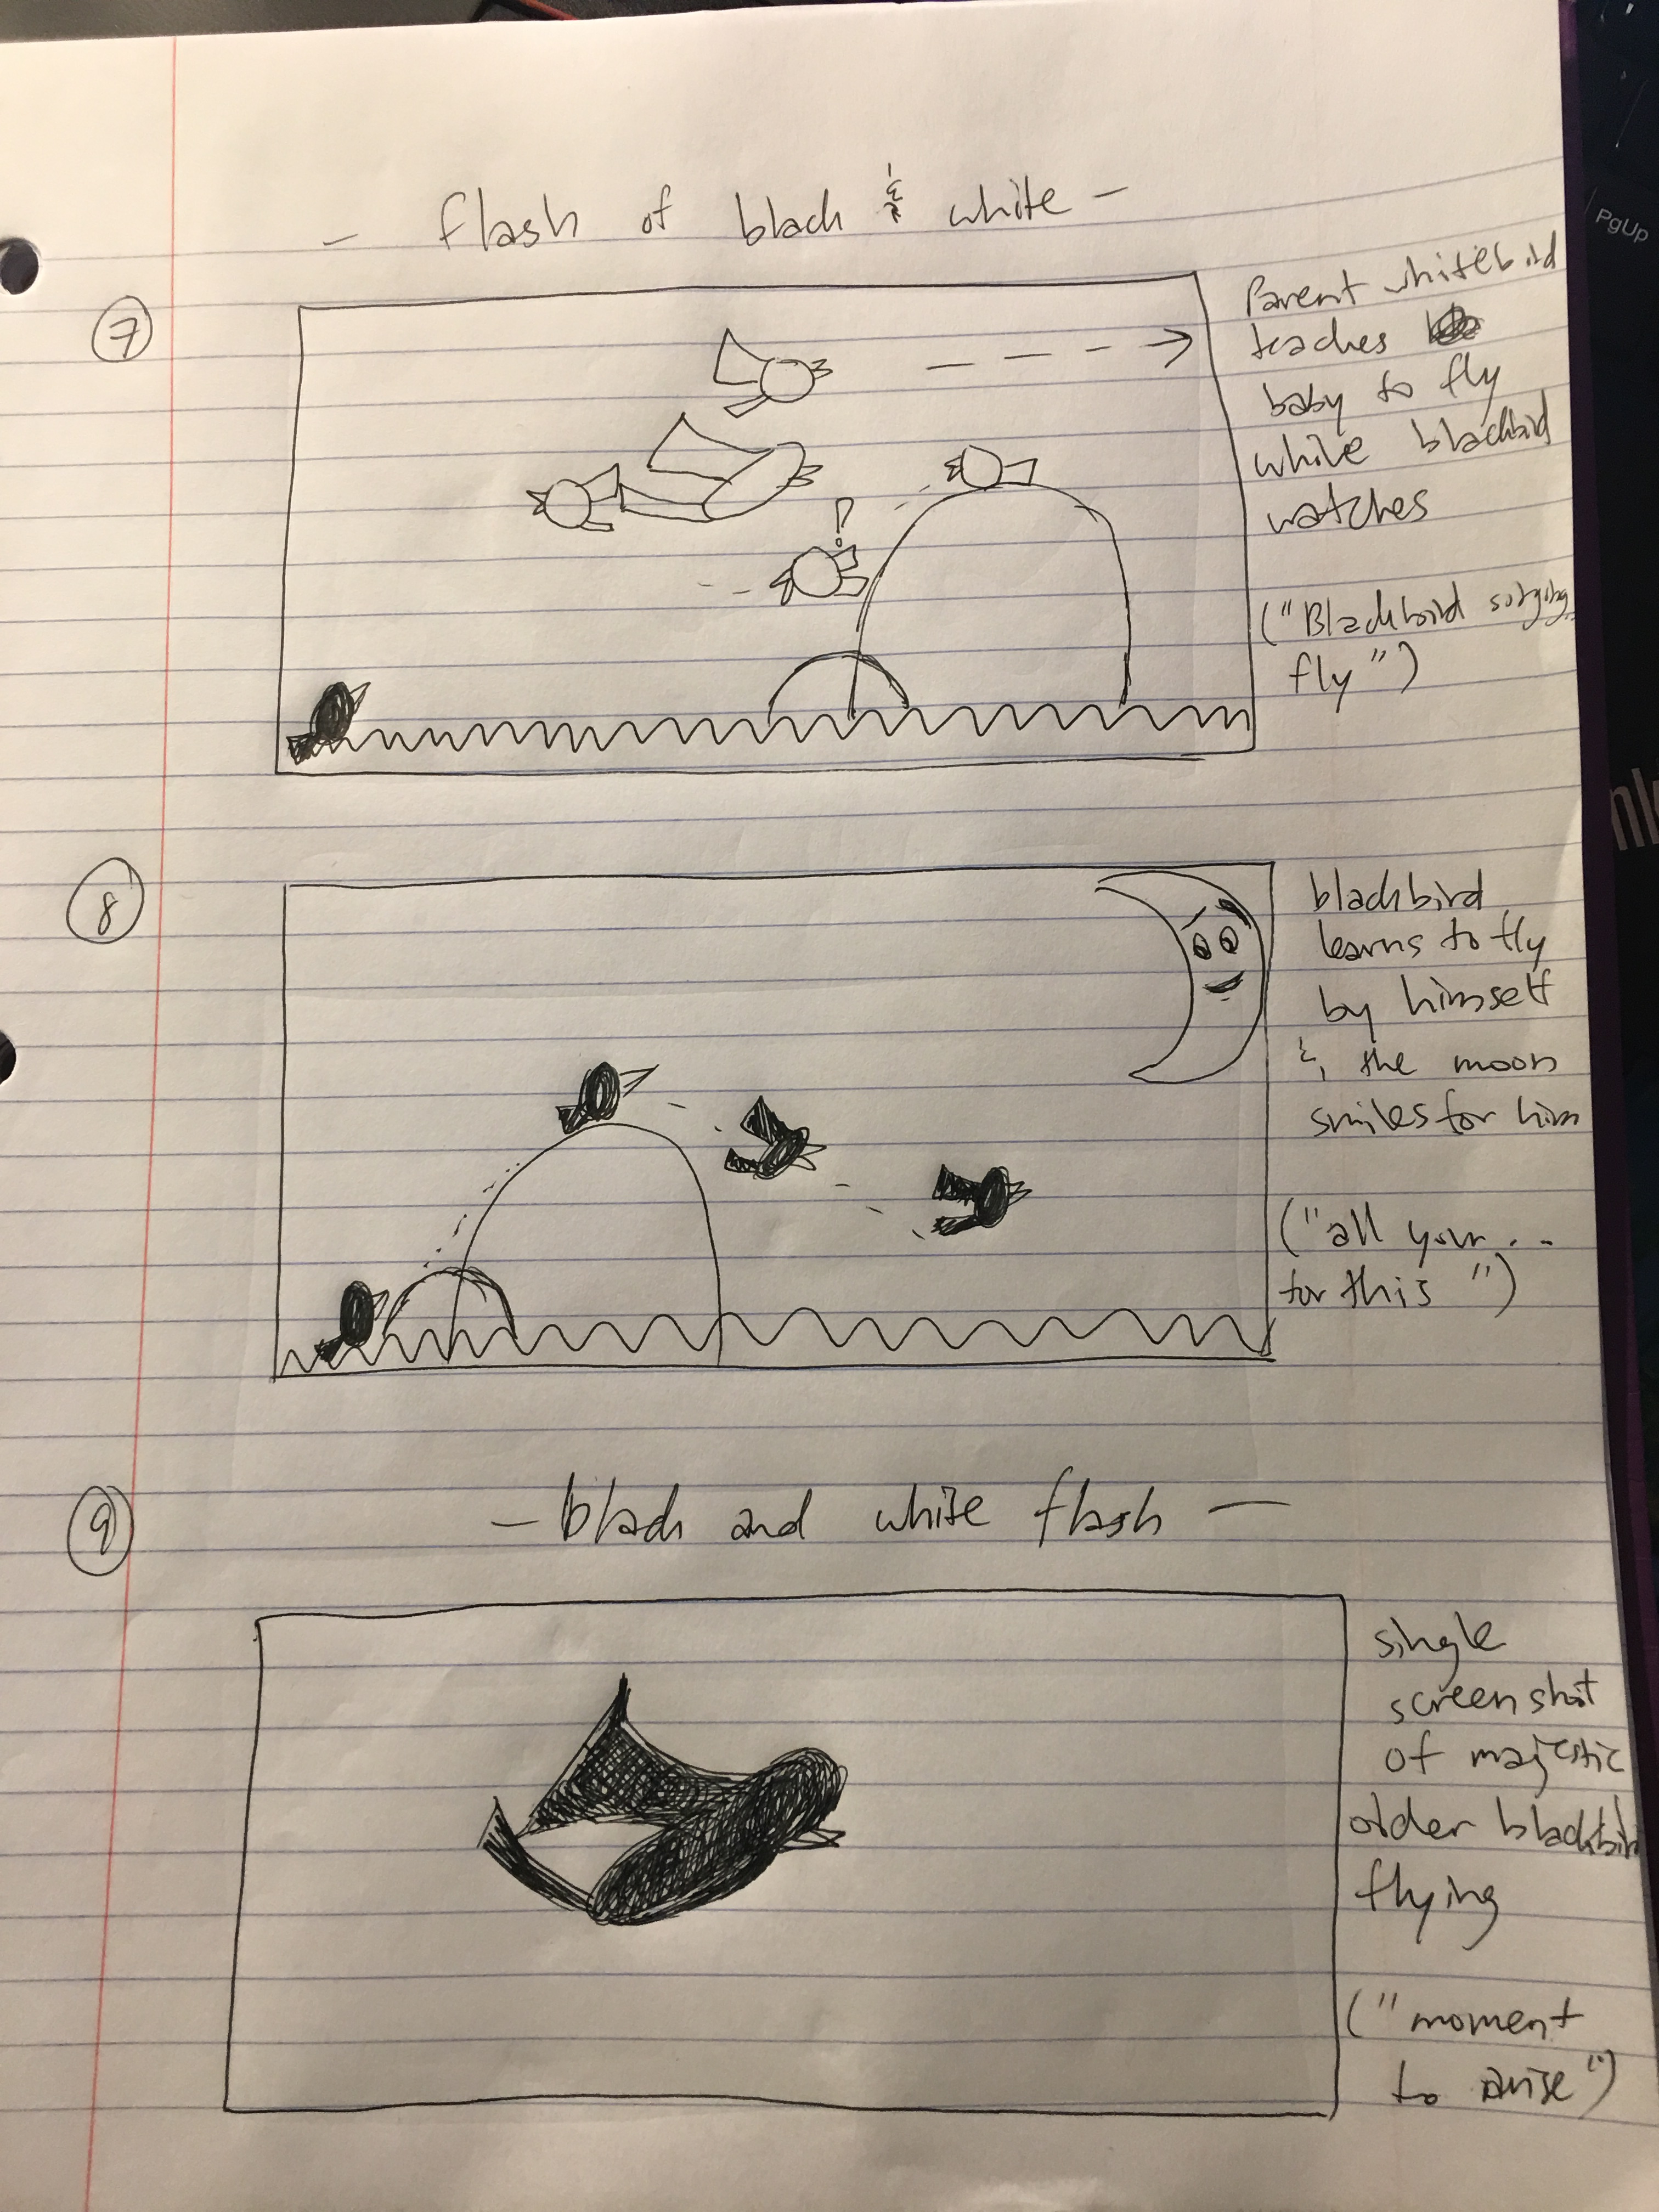 - flash of black & white -
7
Parent whitebird
teaches
baby to fly
while blackbird
watches
("Blackbird singing
fly")
?
8
blackbird
learns to fly
by himself
& the moon
smiles for him
("all your...
for this")
9
- black and white flash -
single
screenshot
of majestic
older blackbird
flying
("moment
to arise")
PgUp